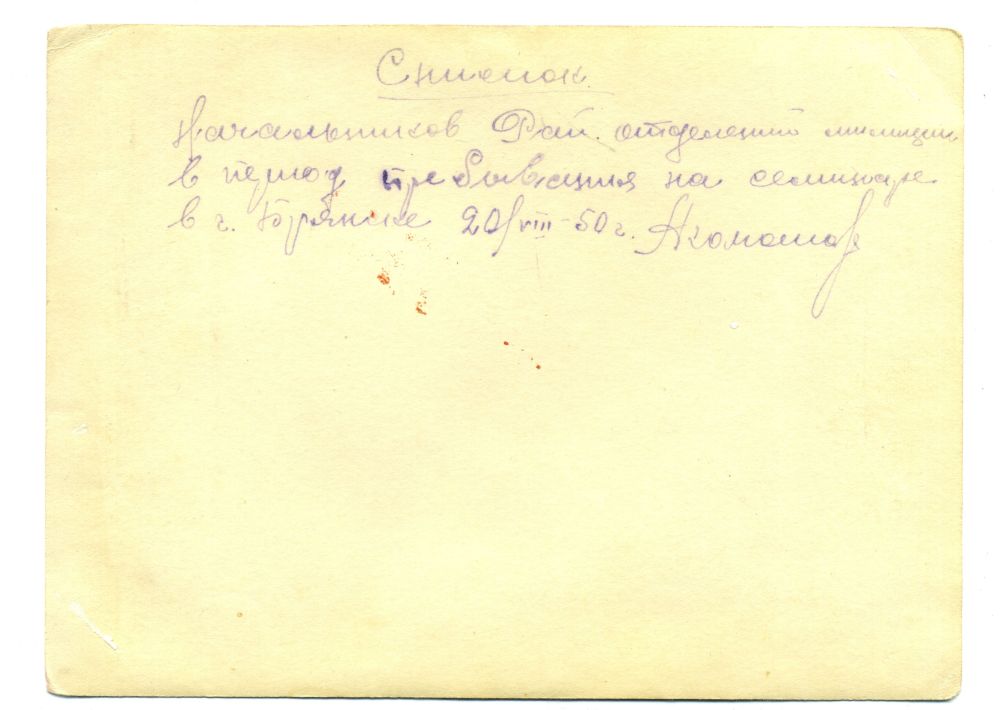 Снимок
начальников Рай. отделений милиции
в период пребывания на семинаре
в г. Брянске 20/VIII-50 г.